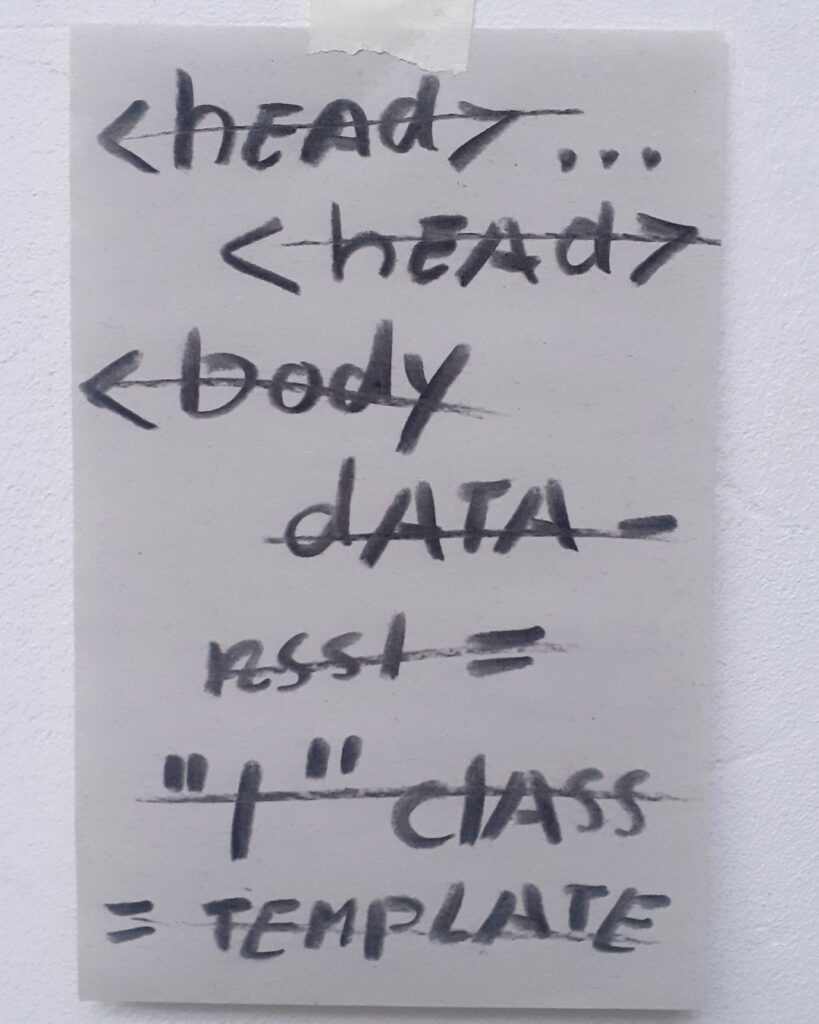 <hEAd>...
<hEAd>
<body
dATA-
rssl=
"1" clASS
= TEMPLATE